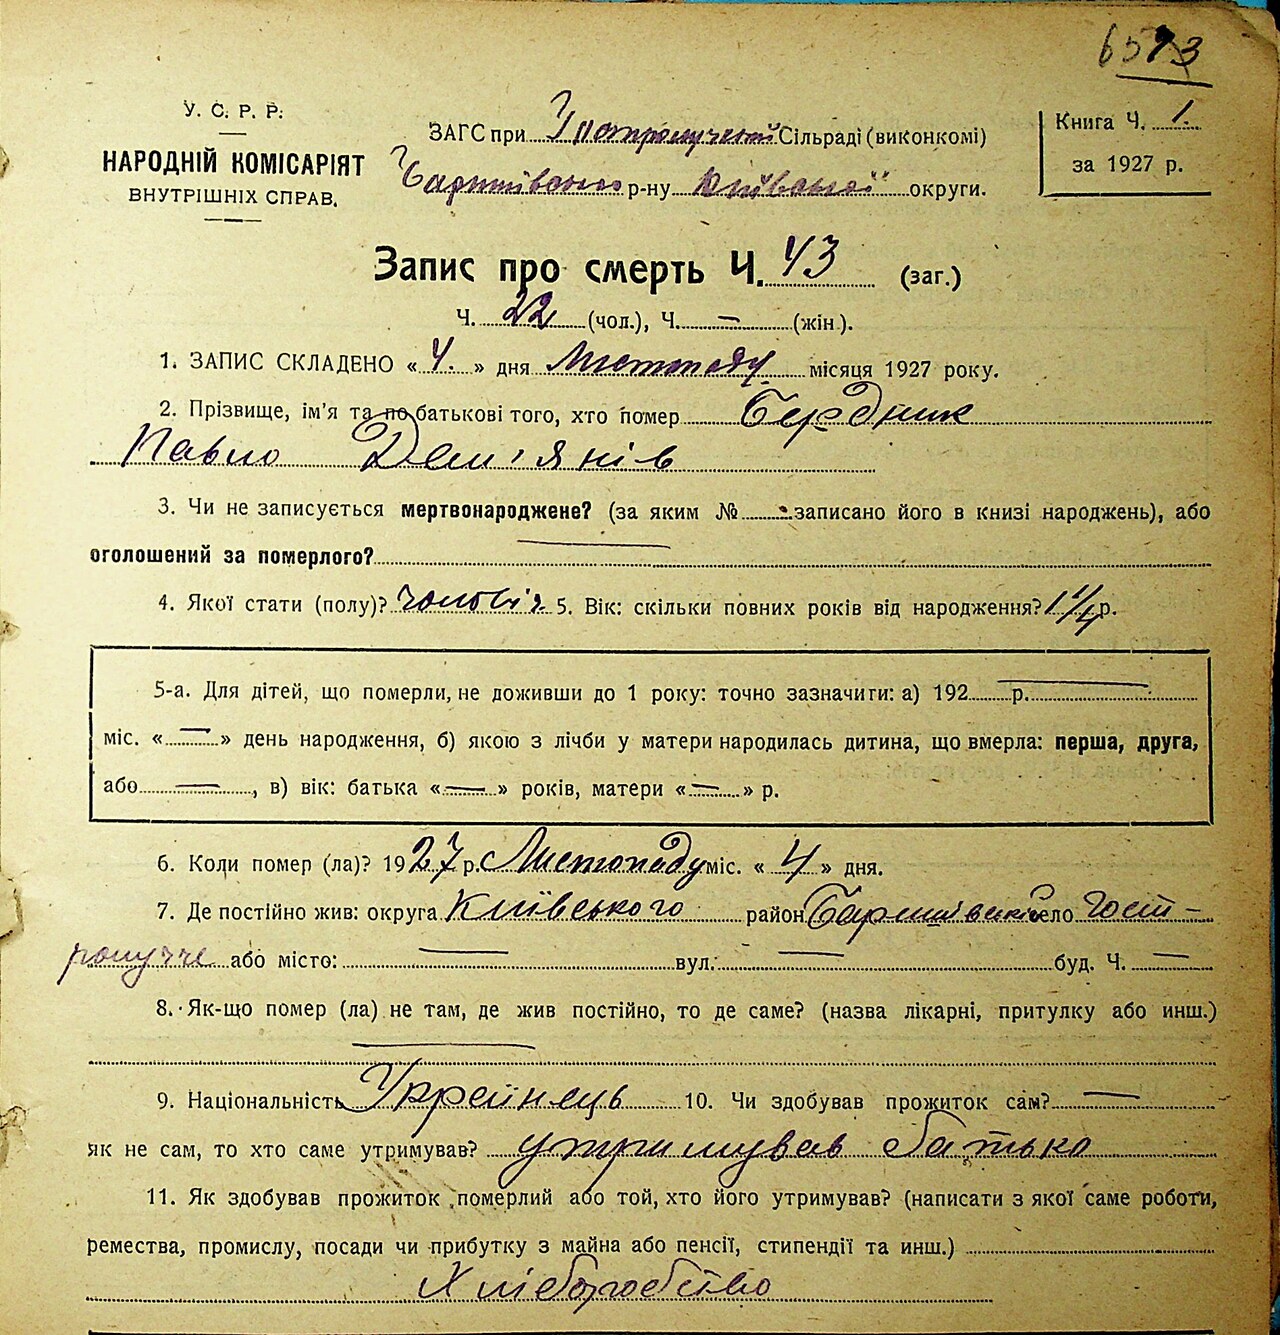 6573
У. С. Р. Р.
НАРОДНІЙ КОМІСАРІЯТ
ВНУТРІШНІХ СПРАВ.
ЗАГС при Сільраді (виконкомі)
р-ну Київської округи.
Книга Ч. 1.
за 1927 р.
Запис про смерть Ч. 43 (заг.)
Ч. 22 (чол.), Ч. — (жін.).
1. ЗАПИС СКЛАДЕНО «4.» дня Листопаду місяця 1927 року.
2. Прізвище, ім'я та по батькові того, хто помер Бердник
Павло Дем'янів
3. Чи не записується мертвонароджене? (за яким № записано його в книзі народжень), або
оголошений за померлого? —
4. Якої стати (полу)? чоловіч 5. Вік: скільки повних років від народження? 1 1/4 р.
5-а. Для дітей, що померли, не доживши до 1 року: точно зазначити: а) 192 р. —
міс. «—» день народження, б) якою з лічби у матери народилась дитина, що вмерла: перша, друга,
або —, в) вік: батька «—» років, матери «—» р.
6. Коли помер (ла)? 1927 р. Листопаду міс. «4» дня.
7. Де постійно жив: округа Київського район Баришівский село Гост-
ролуччє або місто: — вул.: — буд. Ч. —
8. Як-що помер (ла) не там, де жив постійно, то де саме? (назва лікарні, притулку або инш.)
—
9. Національність Украйнець 10. Чи здобував прожиток сам? —
як не сам, то хто саме утримував? утримував батько
11. Як здобував прожиток померлий або той, хто його утримував? (написати з якої саме роботи,
ремества, промислу, посади чи прибутку з майна або пенсії, стипендії та инш.)
Хліборобство